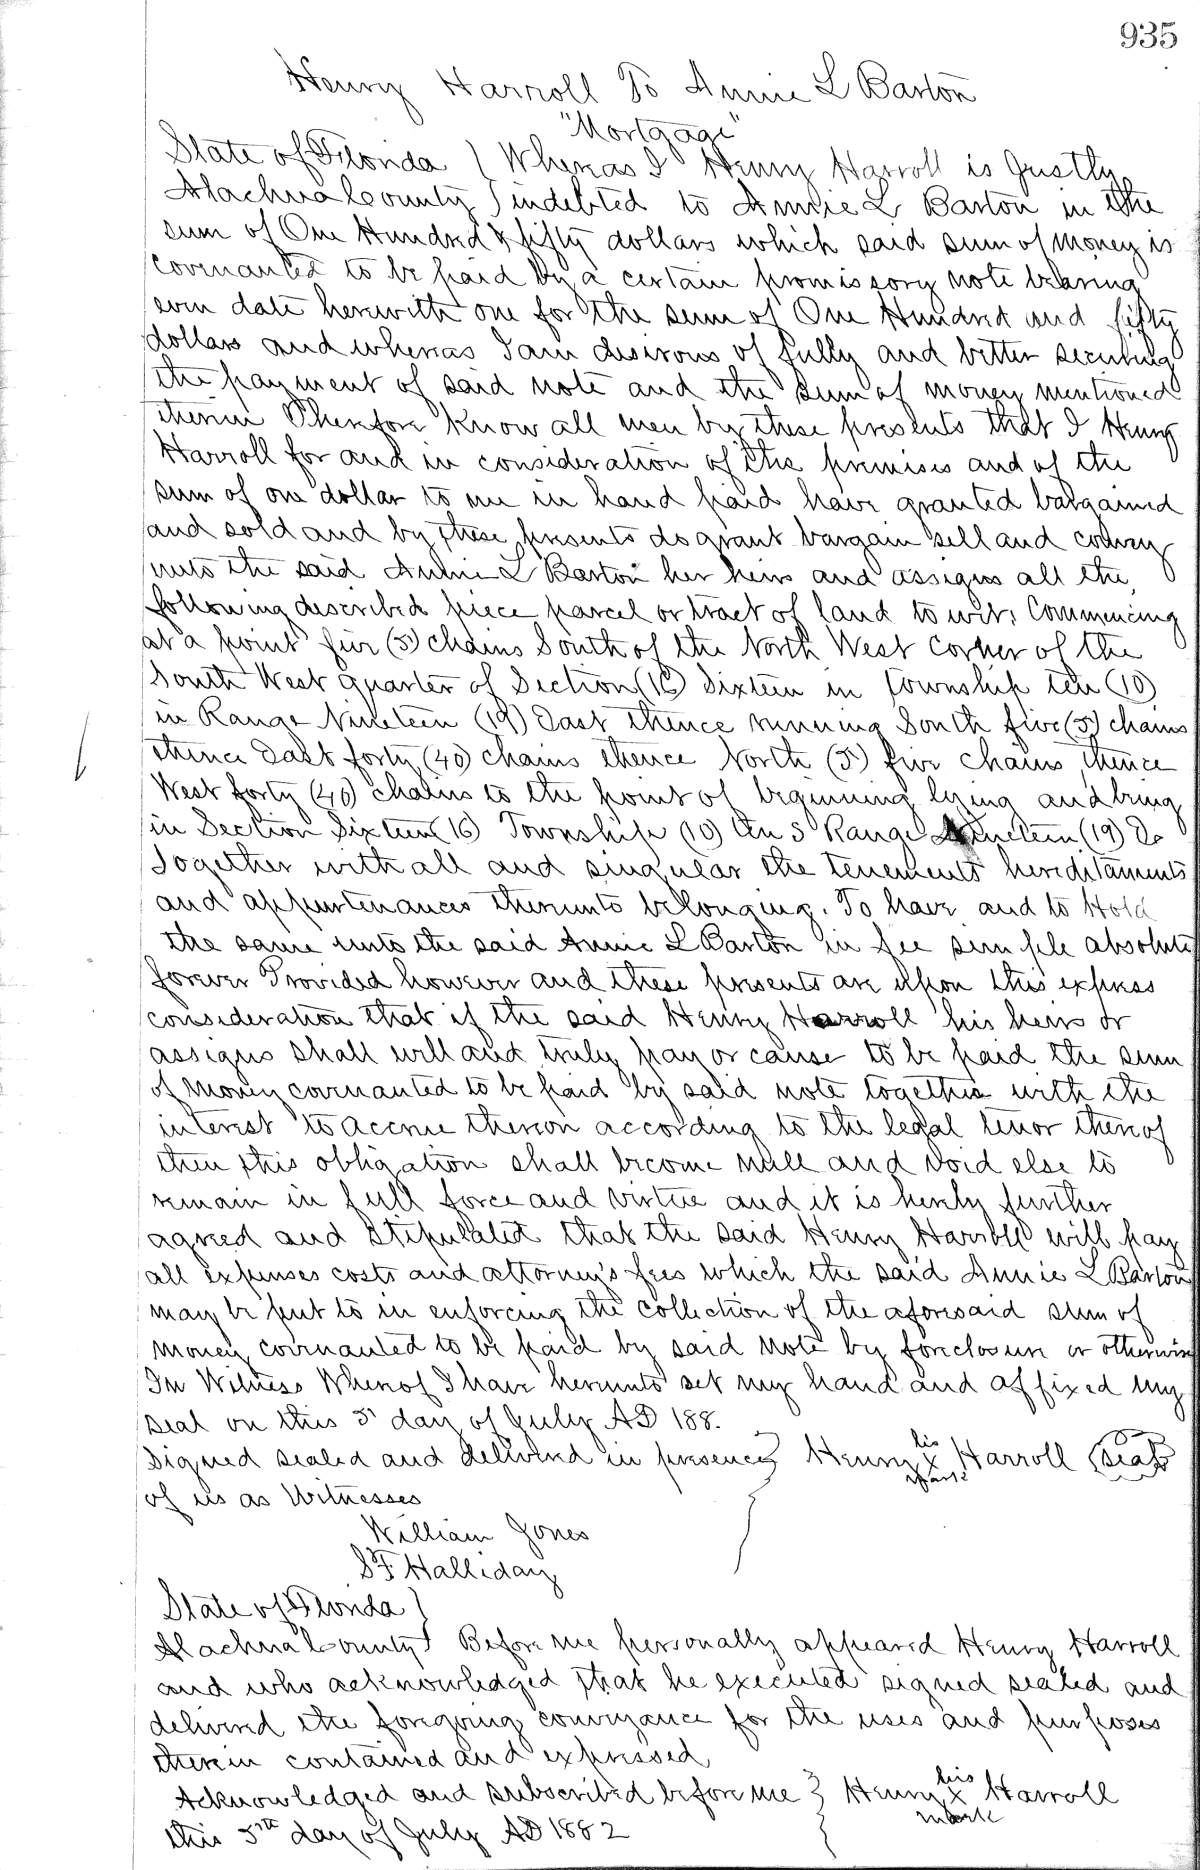 935
Henry Harroll To Annie L Barton
"Mortgage"
State of Florida ) Whereas I Henry Harroll is Justly
Alachua County ) indebted to Annie L Barton in the
sum of One Hundred & fifty dollars which said sum of money is
covenanted to be paid by a certain promissory note bearing
even date herewith one for the sum of One Hundred and fifty
dollars and whereas I am desirous of fully and better securing
the payment of said note and the sum of money mentioned
therein Therefore Know all men by these presents that I Henry
Harroll for and in consideration of the premises and of the
sum of one dollar to me in hand paid have granted bargained
and sold and by these presents do grant bargain sell and convey
unto the said Annie L Barton her heirs and assigns all the
following described piece parcel or tract of land to wit: Commencing
at a point five (5) chains South of the North West corner of the
South West quarter of Section (16) Sixteen in Township ten (10)
in Range Nineteen (19) East thence running South five (5) chains
thence East forty (40) chains thence North (5) five chains thence
West forty (40) chains to the point of beginning lying and being
in Section Sixteen (16) Township (10) ten S Range Nineteen (19) E
Together with all and singular the tenements hereditaments
and appurtenances thereunto belonging. To have and to Hold
the same unto the said Annie L Barton in fee simple absolute
forever Provided however and these presents are upon this express
consideration that if the said Henry Harroll his heirs or
assigns shall well and truly pay or cause to be paid the sum
of money covenanted to be paid by said note together with the
interest to accrue thereon according to the legal tenor thereof
then this obligation shall become null and void else to
remain in full force and virtue and it is hereby further
agreed and stipulated that the said Henry Harroll will pay
all expenses costs and attorney's fees which the said Annie L Barton
may be put to in enforcing the collection of the aforesaid sum of
money covenanted to be paid by said note by foreclosure or otherwise
In Witness Whereof I have hereunto set my hand and affixed my
seal on this 5 day of July AD 188.
Signed sealed and delivered in presence } Henry his x mark Harroll (Seal)
of us as Witnesses
William Jones
S F Halliday
State of Florida )
Alachua County ) Before me personally appeared Henry Harroll
and who acknowledged that he executed signed sealed and
delivered the foregoing conveyance for the uses and purposes
therein contained and expressed
Acknowledged and subscribed before me } Henry his x mark Harroll
this 5th day of July AD 1882